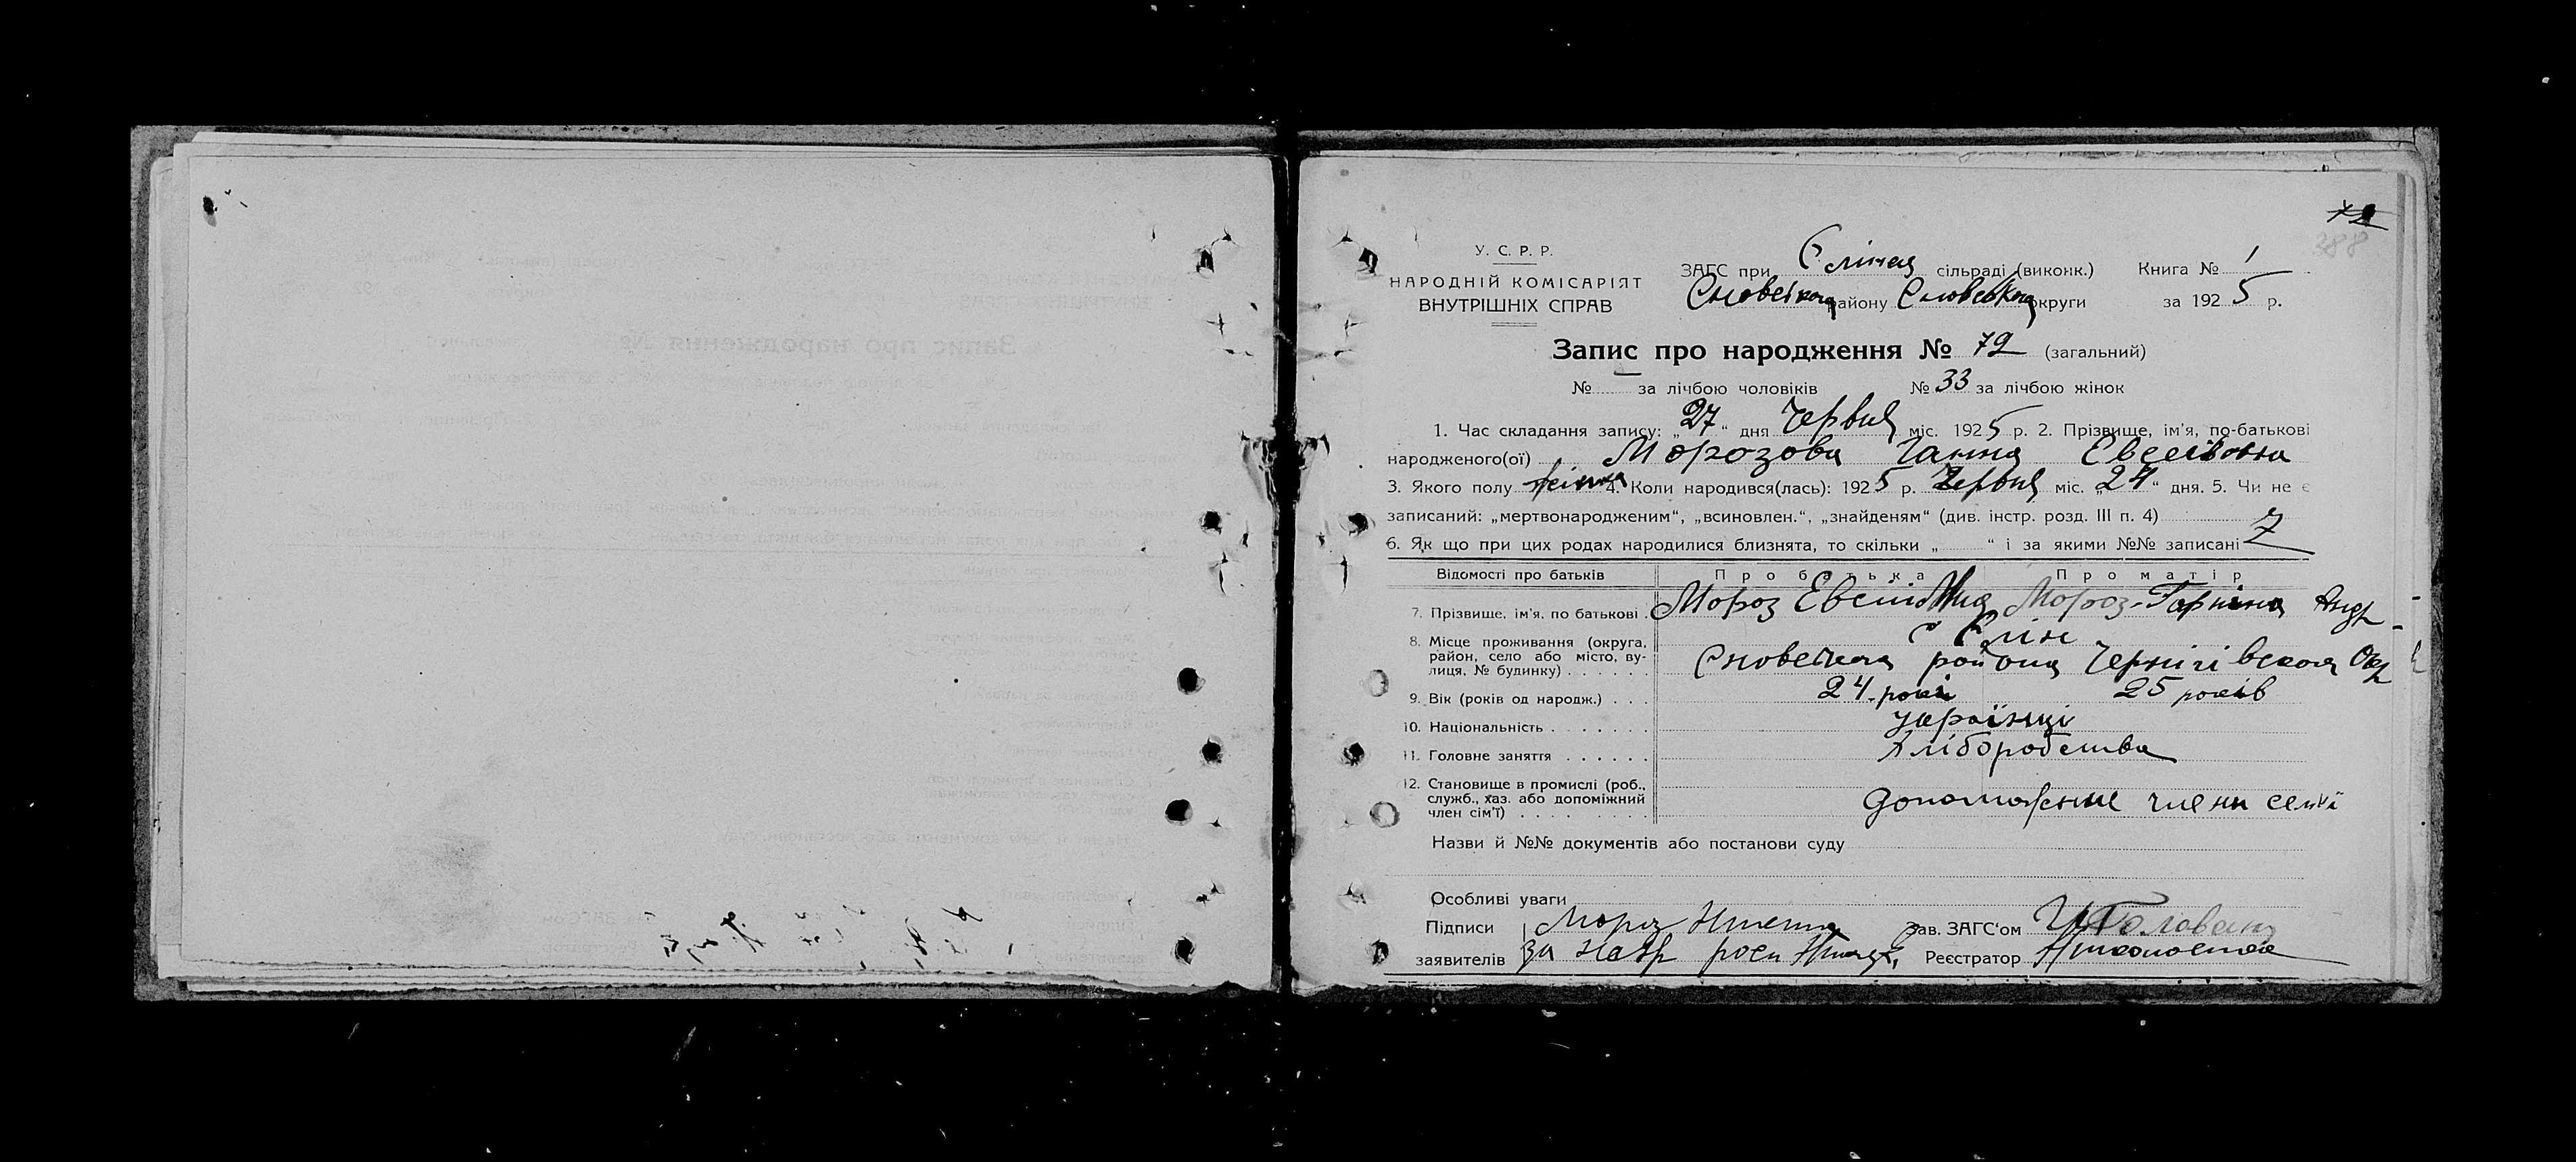 72
388
У. С. Р. Р.
НАРОДНІЙ КОМІСАРІЯТ
ВНУТРІШНІХ СПРАВ
ЗАГС при сільраді (виконк.) Книга № 1
району округи за 1925 р.
Запис про народження № 72 (загальний)
№ — за лічбою чоловіків № 33 за лічбою жінок
1. Час складання запису: „27“ дня Червня міс. 1925 р. 2. Прізвище, ім'я, по-батькові
народженого(ої) Морозова Ганна
3. Якого полу жіноча 4. Коли народився(лась): 1925 р. Червня міс. „24“ дня. 5. Чи не є
записаний: „мертвонародженим“, „всиновлен.“, „знайденям“ (див. інстр. розд. III п. 4)
6. Як що при цих родах народилися близнята, то скільки „ “ і за якими №№ записані
Відомості про батьків Про батька Про матір
7. Прізвище, ім'я, по батькові Мороз Мороз Андр
8. Місце проживання (округа,
район, село або місто, ву-
лиця, № будинку)
района Чернігівской Окр
9. Вік (років од народж.) 24 років 25 років
10. Національність українці
11. Головне заняття хліборобства
12. Становище в промислі (роб.,
служб., хаз. або допоміжний
член сім'ї) члени семї
Назви й №№ документів або постанови суду
Особливі уваги
Підписи Мороз Зав. ЗАГС'ом
заявителів за Реєстратор